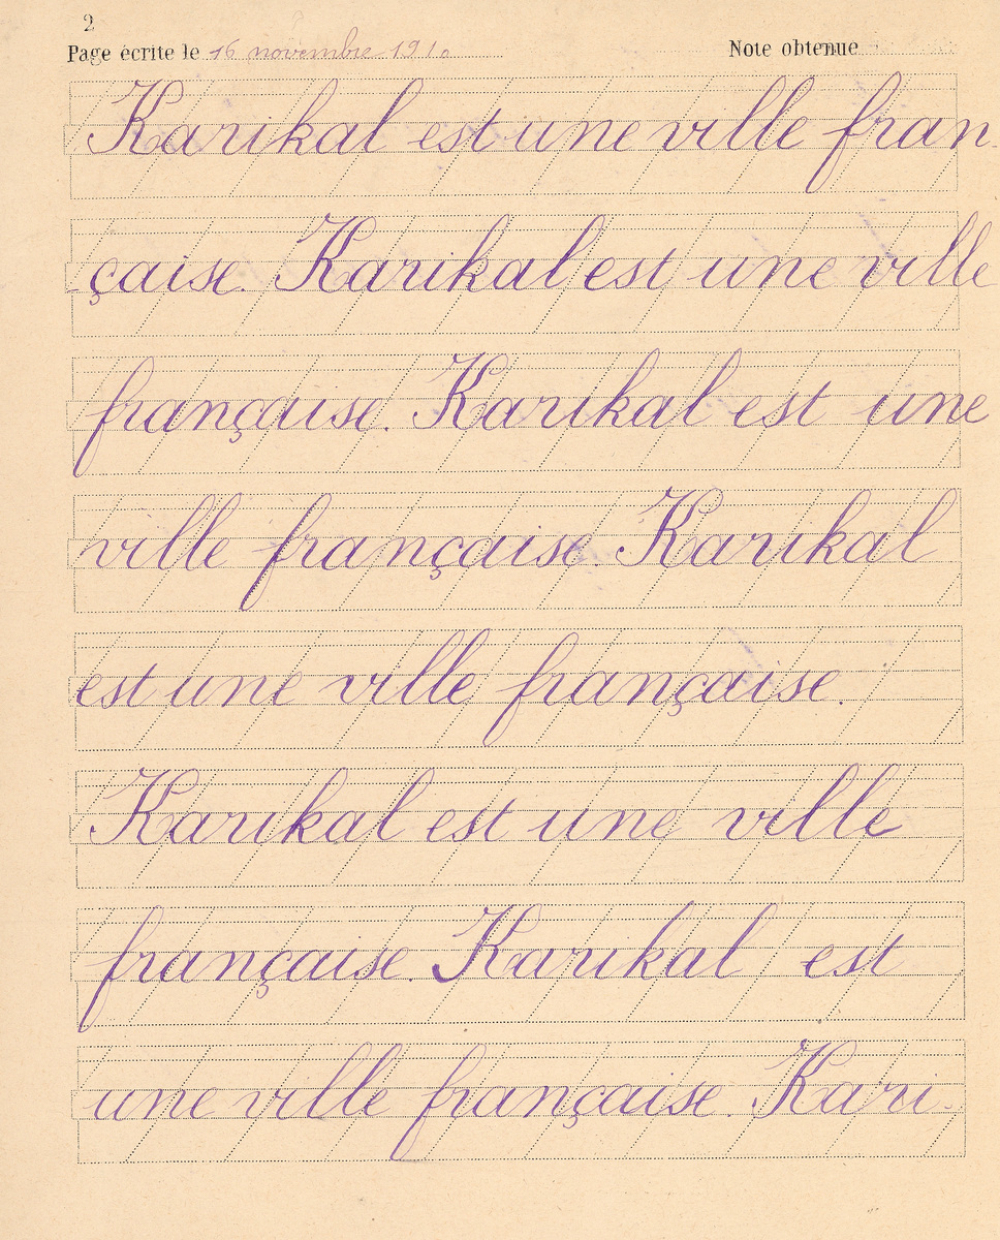 2
Page écrite le 16 novembre 1910 Note obtenue
Karikal est une ville fran-
çaise. Karikal est une ville
française. Karikal est une
ville française. Karikal
est une ville française.
Karikal est une ville
française. Karikal est
une ville française. Kari-